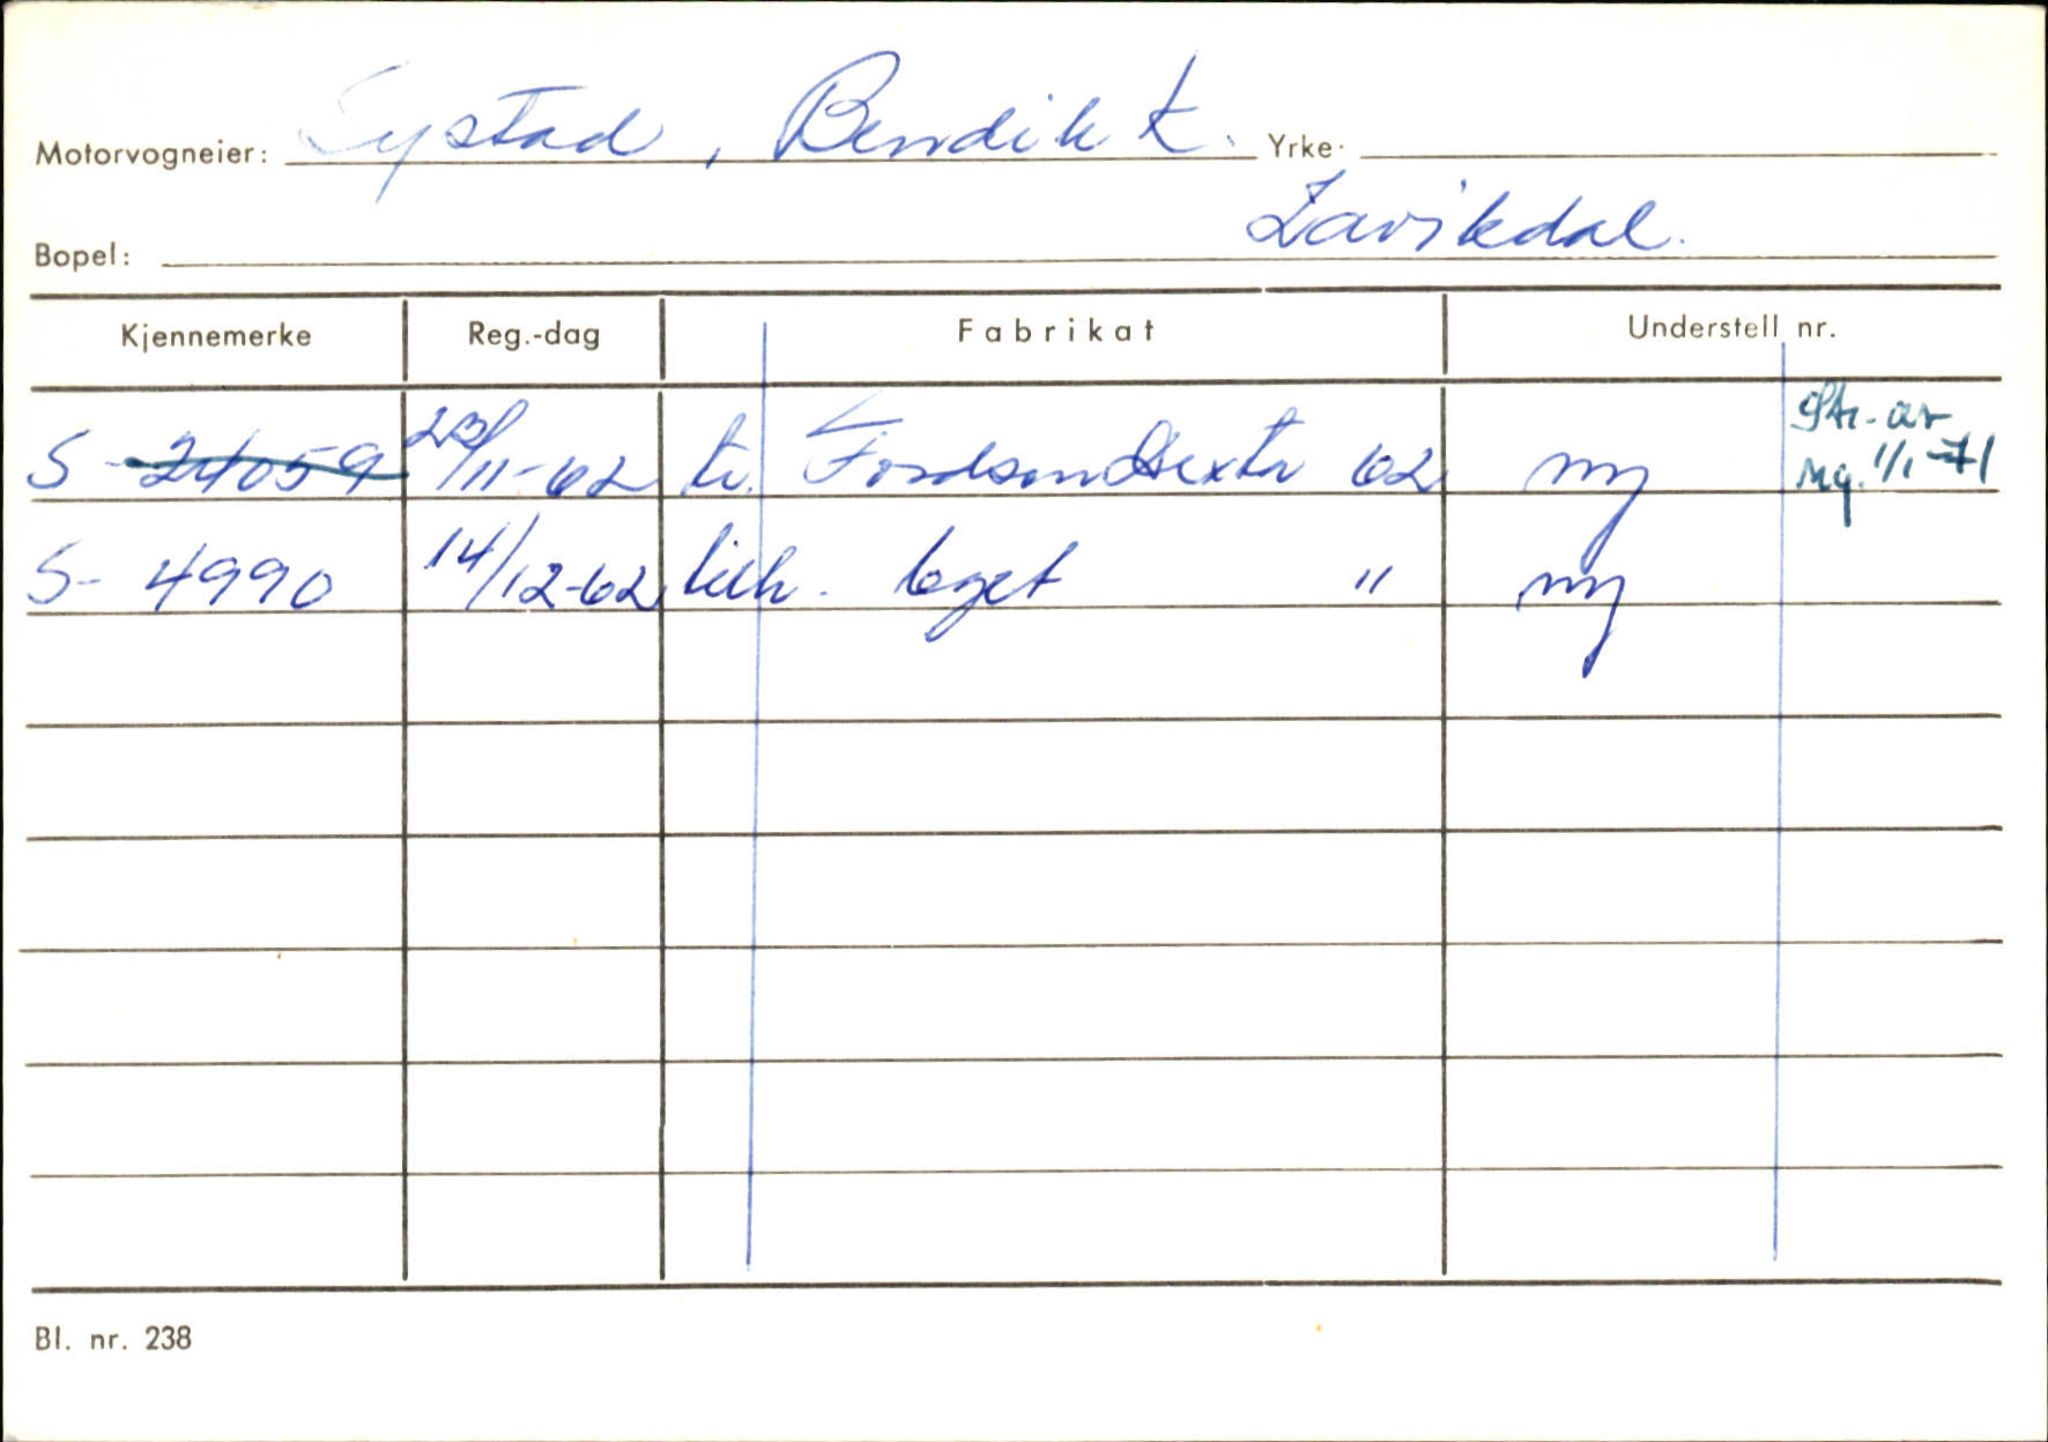 Motorvogneier: Systad, Bendik K. Yrke:
Bopel: Lavikdal.
Kjennemerke Reg.-dag Fabrikat Understell nr.
S-24059 23/11-62 tr. Fordson Dexta 62 ny Str. av
Mg. 1/1-71
S-4990 14/12-62 tilh. Eget " ny
Bl. nr. 238